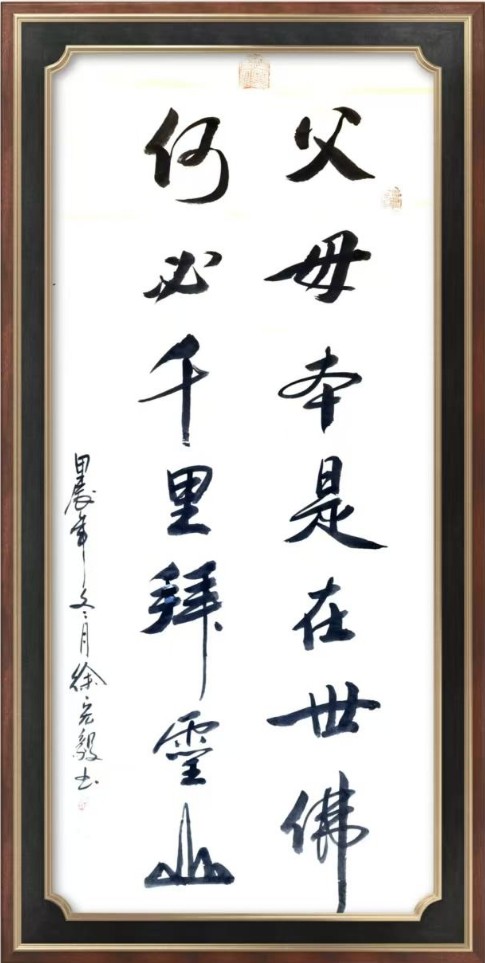 父母本是在世佛
何必千里拜靈山
甲辰年冬月徐宏毅书